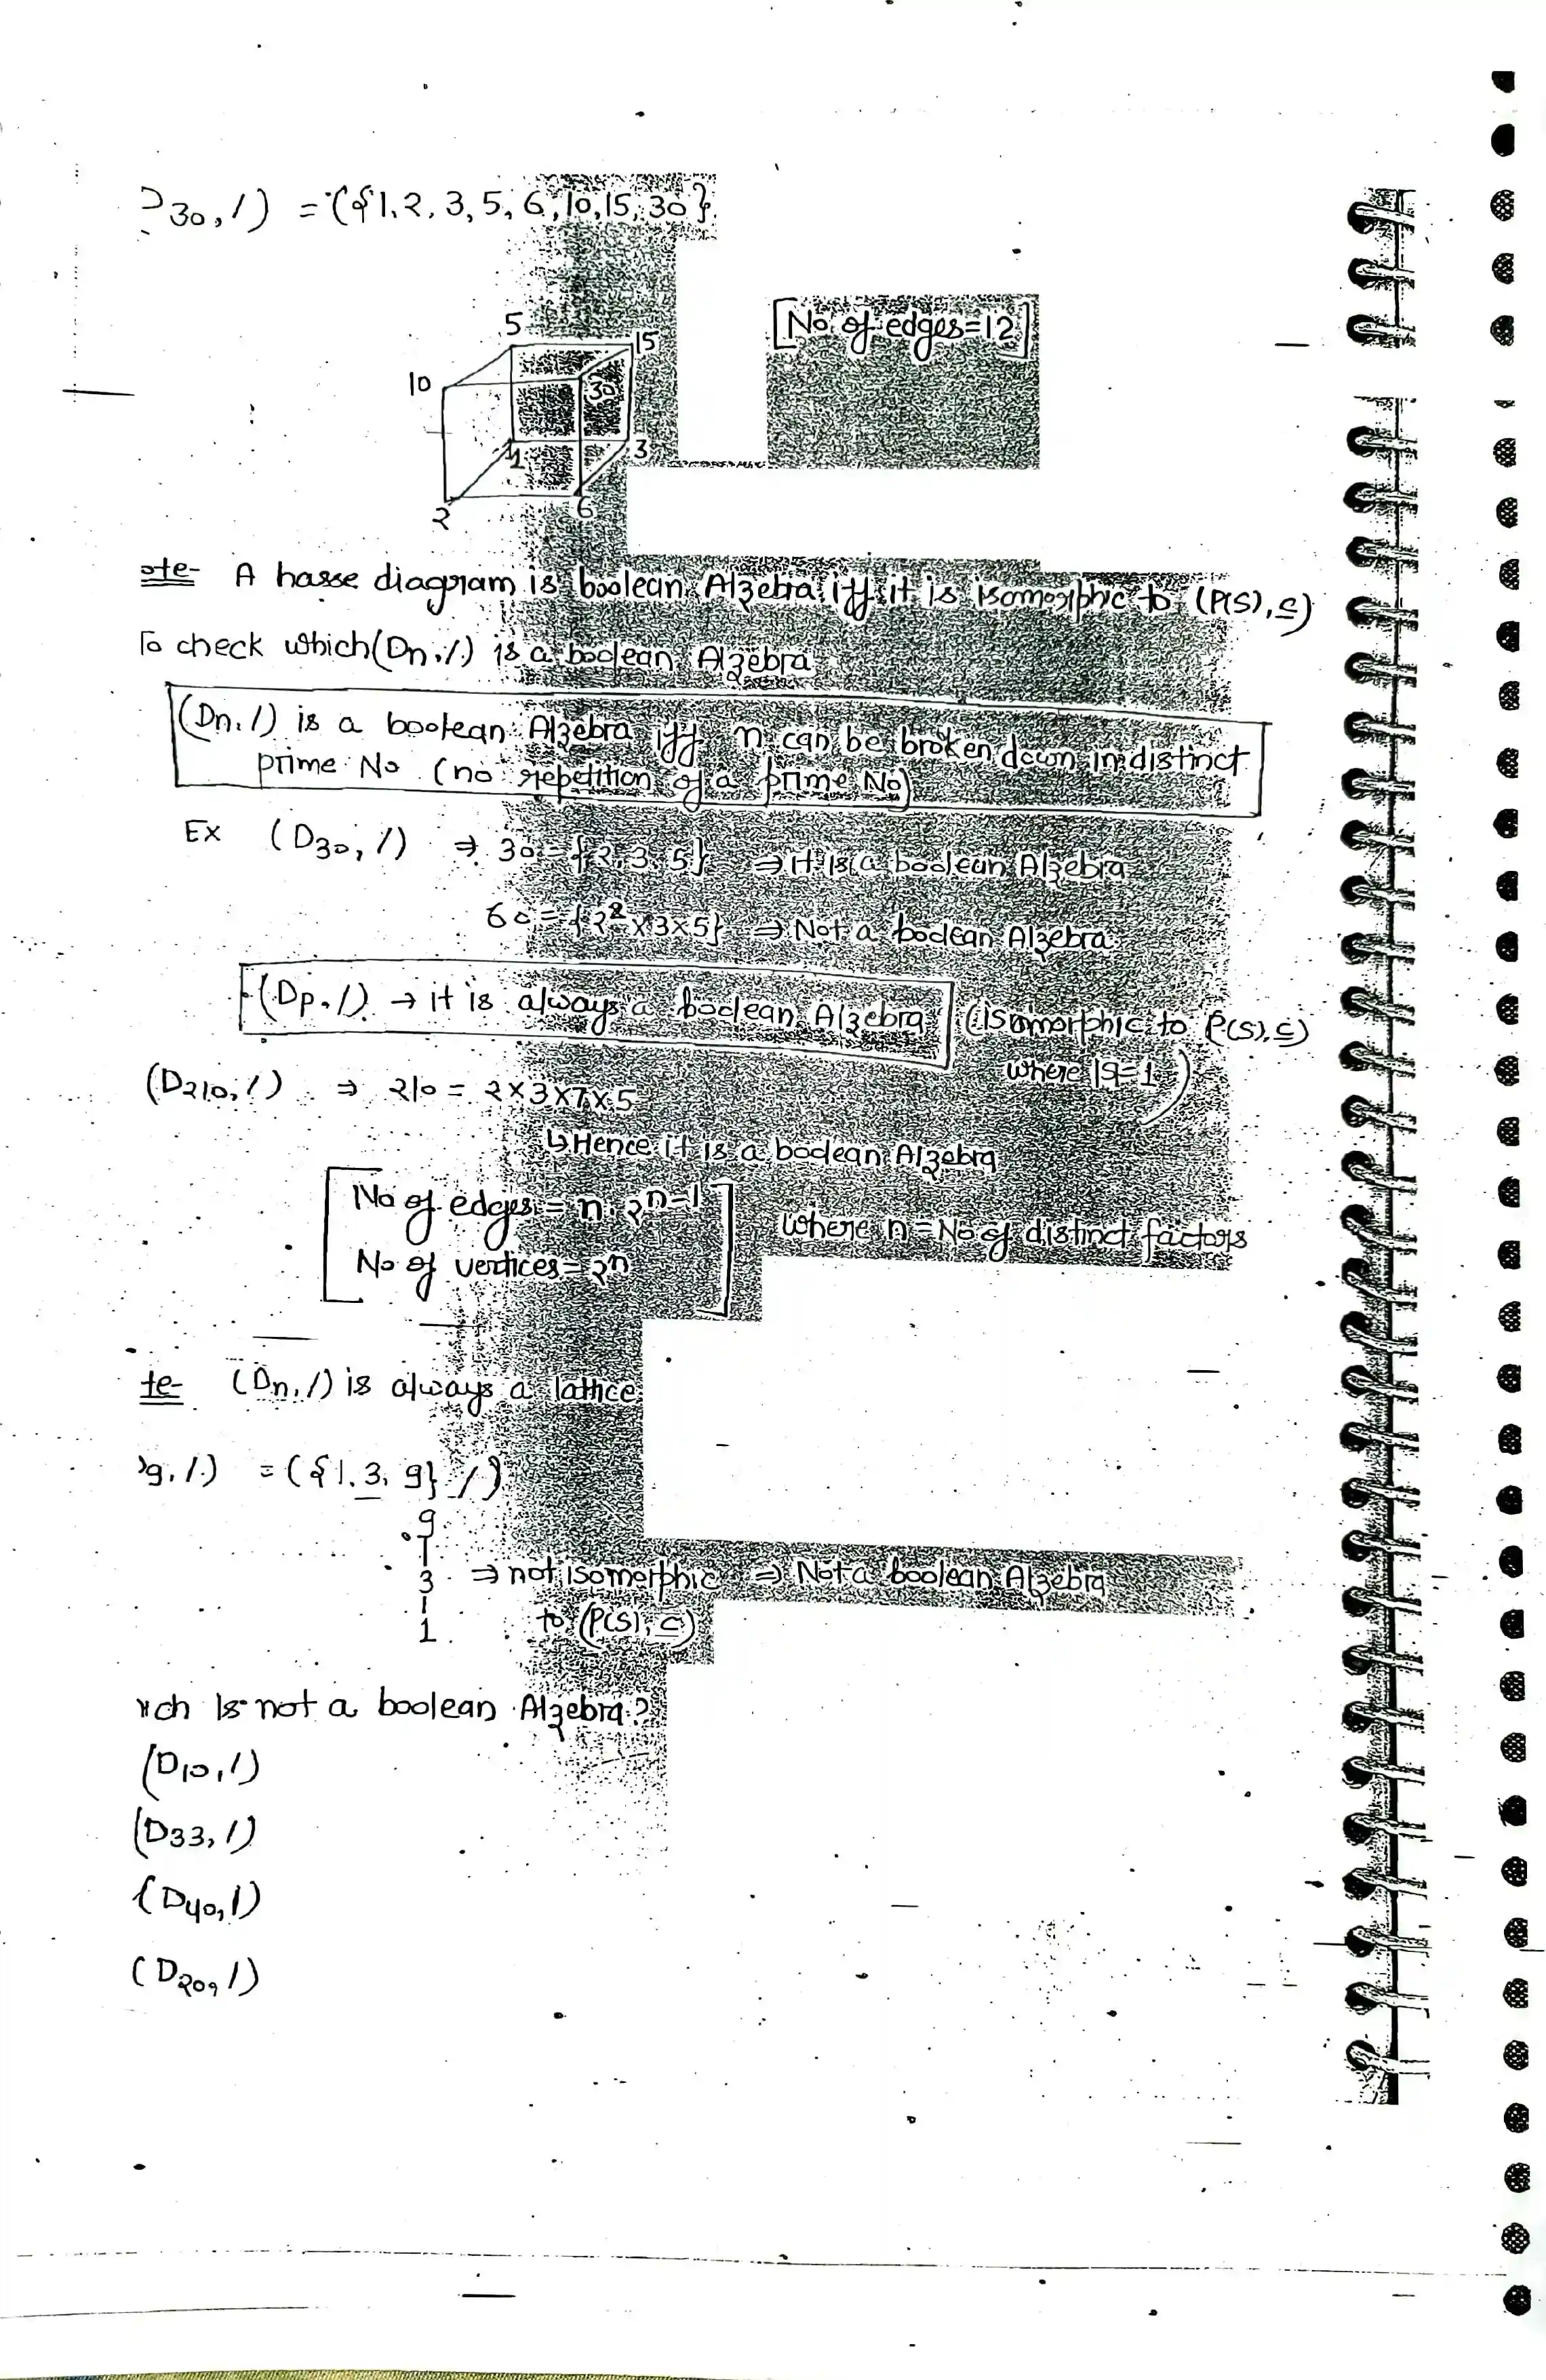 30, /) = ({1, 2, 3, 5, 6, 10, 15, 30}.
[No of edges=12]
5
15
10
30
1
3
2
6
ote- A hasse diagram is boolean Algebra iff it is isomorphic to (P(S), ⊆)
To check which (Dn, /) is a boolean Algebra
(Dn, /) is a boolean Algebra iff n can be broken down in distinct
prime No. (no repetition of a prime No)
Ex (D30, /) ⇒ 30 = {2, 3, 5} ⇒ it is a boolean Algebra
60 = {2² x 3 x 5} ⇒ Not a boolean Algebra
(Dp, /) → it is always a boolean Algebra (isomorphic to P(S), ⊆)
where |S|=1)
(D210, /) ⇒ 210 = 2 x 3 x 7 x 5
↳ Hence it is a boolean Algebra
No of edges = n. 2ⁿ⁻¹
where n = No of distinct factors
No of vertices = 2ⁿ
te- (Dn, /) is always a lattice
9, /) = ({1, 3, 9}, /)
9
3 ⇒ not isomorphic ⇒ Not a boolean Algebra
1 to (P(S), ⊆)
ich is not a boolean Algebra?
(D10, /)
(D33, /)
(D40, /)
(D209, /)